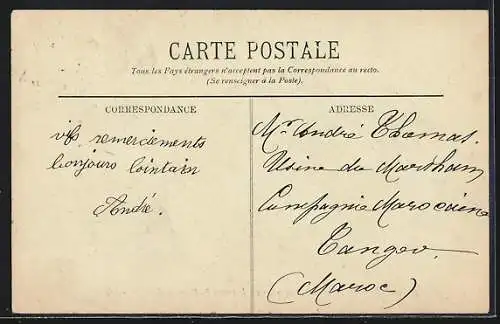 CARTE POSTALE
Tous les Pays étrangers n'acceptent pas la Correspondance au recto.
(Se renseigner à la Poste).
CORRESPONDANCE
ADRESSE
vifs remerciements
bonjours lointain
André.
Mr André Thomas.
Usine du
Compagnie Marocaine
Tanger
(Maroc)